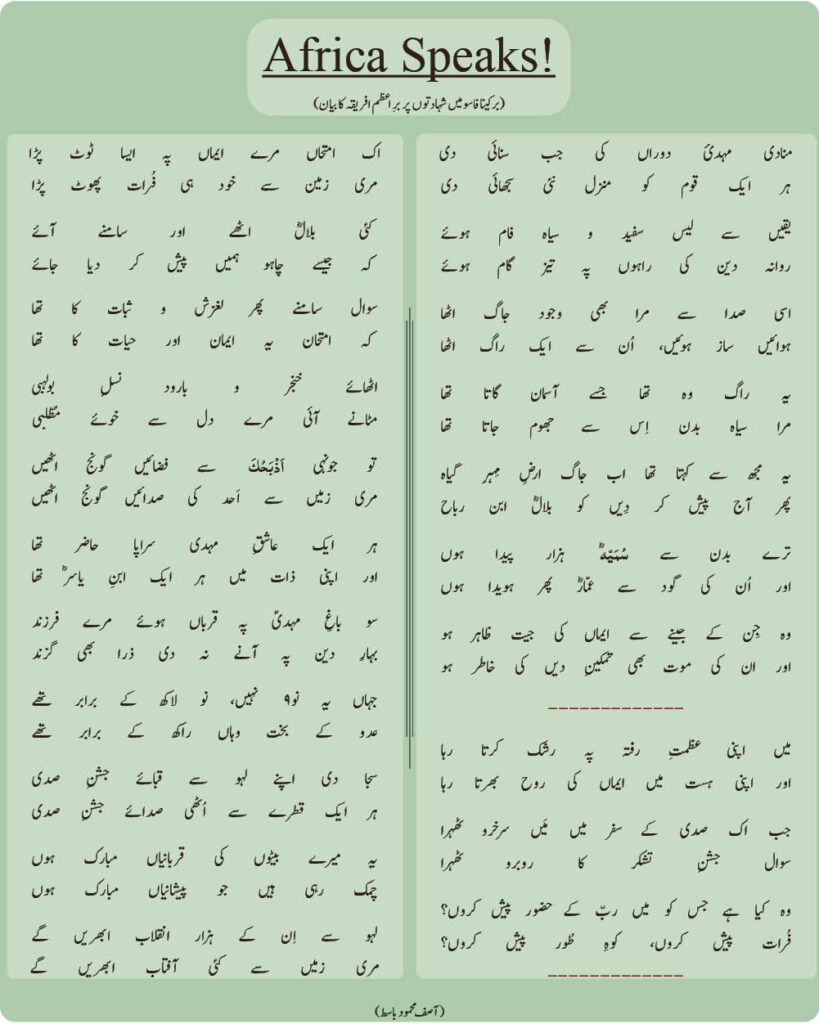 Africa Speaks!
(برکینا فاسو میں شہادتوں پر برِ اعظم افریقہ کا بیان)
منادی مہدیٔ دوراں کی جب سنائی دی
ہر ایک قوم کو منزل نئی سجھائی دی
یقیں سے لیس سفید و سیاہ فام ہوئے
روانہ دین کی راہوں پہ تیز گام ہوئے
اسی صدا سے مرا بھی وجود جاگ اٹھا
ہوائیں ساز ہوئیں، اُن سے ایک راگ اٹھا
یہ راگ وہ تھا جسے آسمان گاتا تھا
مرا سیاہ بدن اِس سے جھوم جاتا تھا
یہ مجھ سے کہتا تھا اب جاگ ارضِ مِہر گیاہ
پھر آج پیش کر دِیں کو بلالؓ ابن رباح
ترے بدن سے سُمَیّہؓ ہزار پیدا ہوں
اور اُن کی گود سے عمّارؓ پھر ہویدا ہوں
وہ جِن کے جینے سے ایماں کی جیت ظاہر ہو
اور ان کی موت بھی تمکینِ دیں کی خاطر ہو
–––––––––––––
میں اپنی عظمتِ رفتہ پہ رشک کرتا رہا
اور اپنی ہست میں ایماں کی روح بھرتا رہا
جب اک صدی کے سفر میں مَیں سرخرو ٹھہرا
سوال جشنِ تشکر کا روبرو ٹھہرا
وہ کیا ہے جس کو میں ربّ کے حضور پیش کروں؟
فُرات پیش کروں، کوہِ طُور پیش کروں؟
–––––––––––––
اک امتحاں مرے ایماں پہ ایسا ٹوٹ پڑا
مری زمین سے خود ہی فُرات پھوٹ پڑا
کئی بلالؓ اٹھے اور سامنے آئے
کہ جیسے چاہو ہمیں پیش کر دیا جائے
سوال سامنے پھر لغزش و ثبات کا تھا
کہ امتحان یہ ایمان اور حیات کا تھا
اٹھائے خنجر و بارود نسلِ بولہبی
مٹانے آئی مرے دل سے خوئے مطّلبی
تو جونہی اَذْبَحُكَ سے فضائیں گونج اٹھیں
مری زمیں سے اَحد کی صدائیں گونج اٹھیں
ہر ایک عاشقِ مہدی سراپا حاضر تھا
اور اپنی ذات میں ہر ایک ابنِ یاسرؓ تھا
سو باغِ مہدیؑ پہ قرباں ہوئے مرے فرزند
بہارِ دین پہ آنے نہ دی ذرا بھی گزند
جہاں یہ نو۹ نہیں، نو لاکھ کے برابر تھے
عدو کے بخت وہاں راکھ کے برابر تھے
سجا دی اپنے لہو سے قبائے جشنِ صدی
ہر ایک قطرے سے اُٹھی صدائے جشنِ صدی
یہ میرے بیٹوں کی قربانیاں مبارک ہوں
چمک رہی ہیں جو پیشانیاں مبارک ہوں
لہو سے اِن کے ہزار انقلاب ابھریں گے
مری زمیں سے کئی آفتاب ابھریں گے
(آصف محمود باسط)